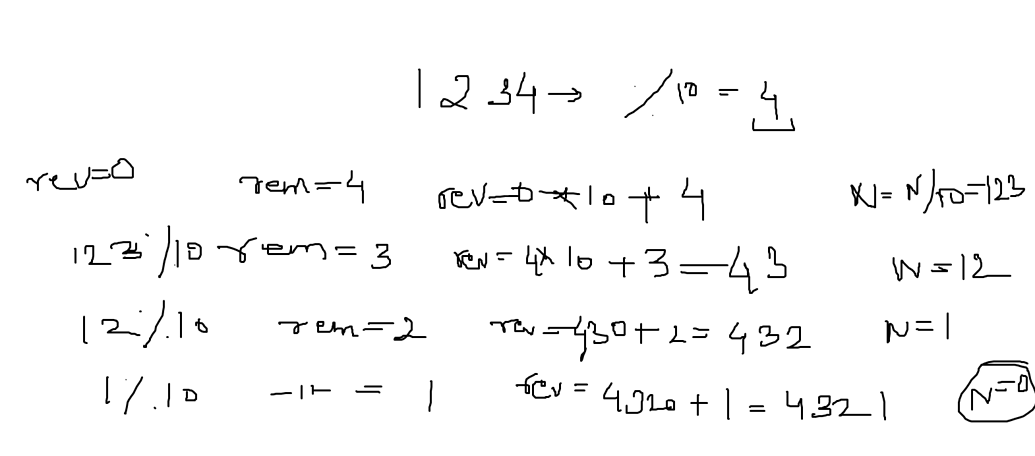 1 2 34 → % 10 = 4
rev=0 rem=4 rev=0*10+4 N=N/10=123
123%10 rem=3 rev=4*10+3=43 N=12
12%10 rem=2 rev=430+2=432 N=1
1%10 -11- = 1 rev=4320+1=4321 N=0